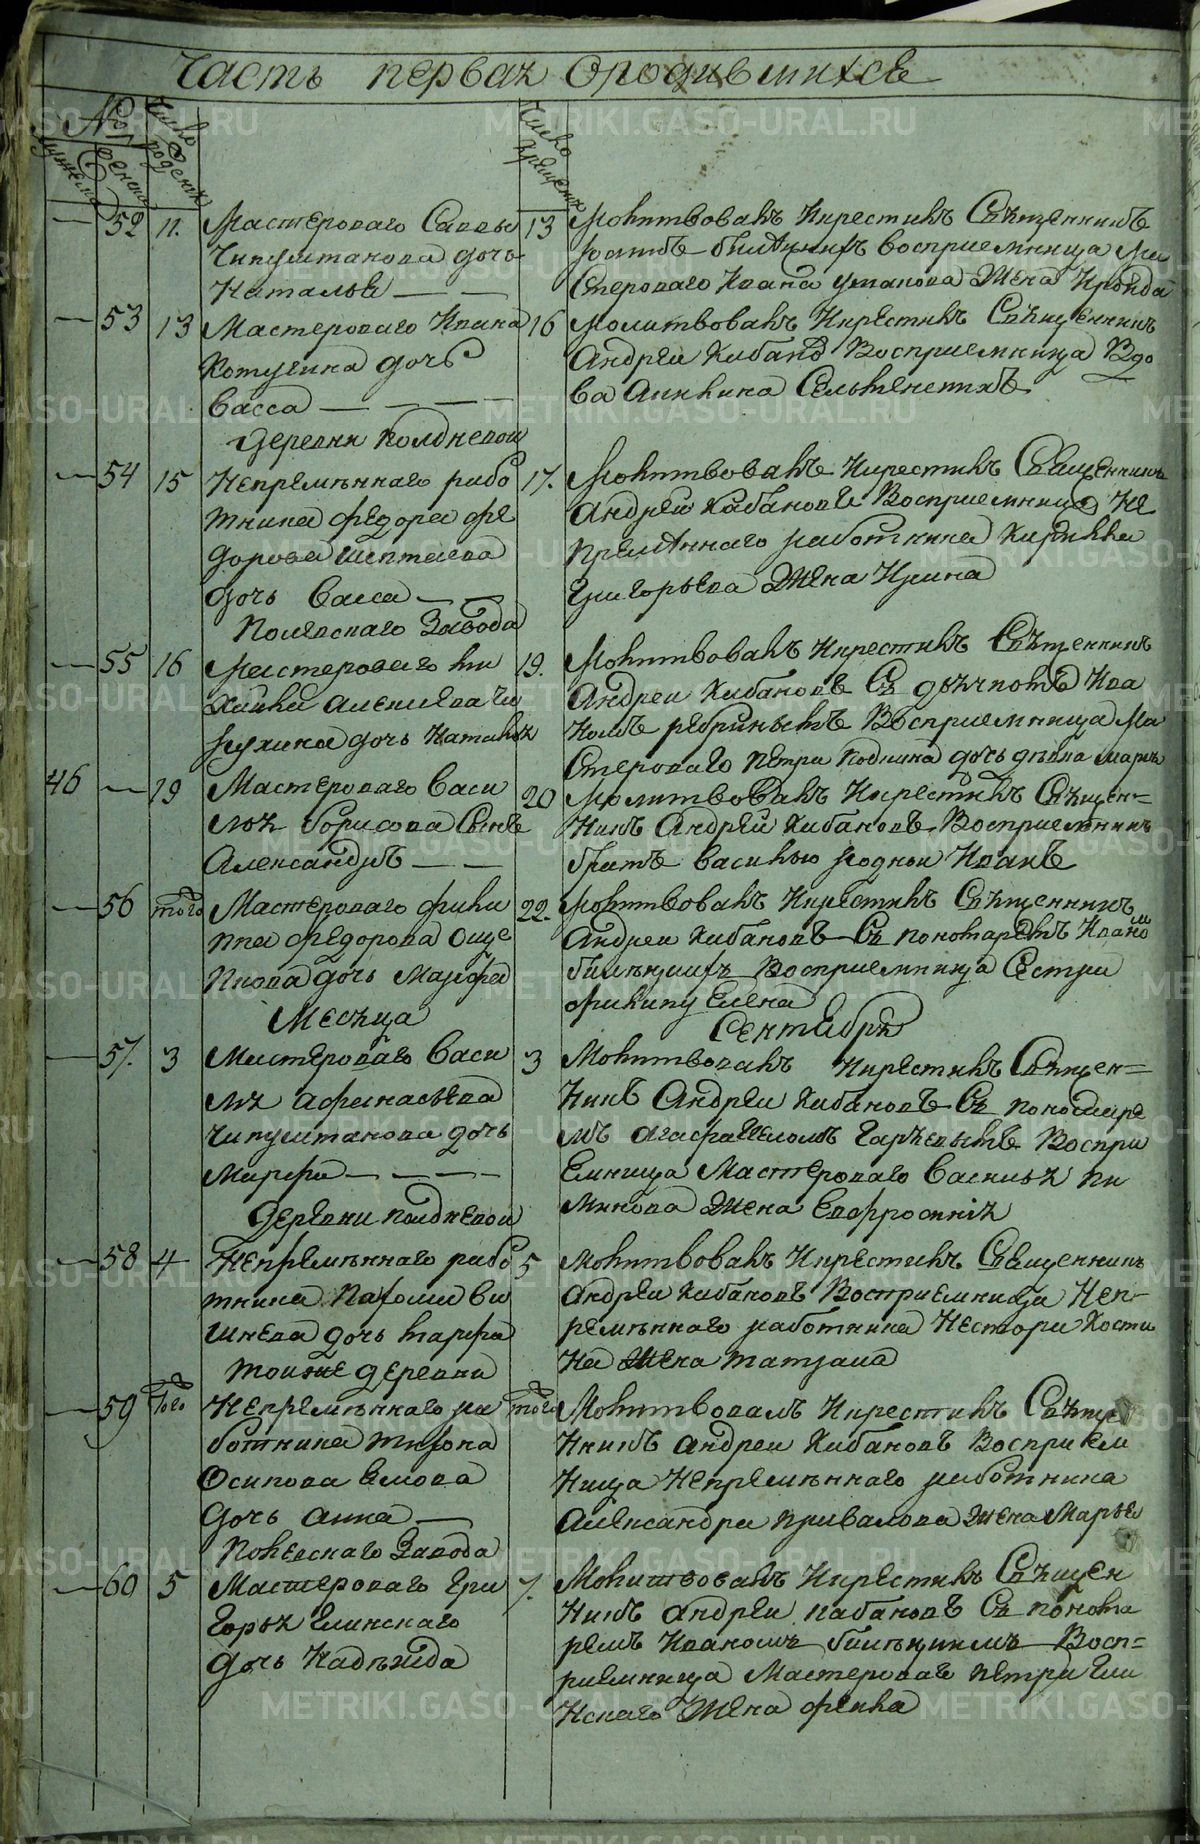 Часть первая о родившихся
№
мужеска
женска
Число рожденія
Число крещенія
52 11. Мастероваго Саввы
Чипуштанова дочь
Наталья
13 Молитвовалъ и крестилъ Священникъ
восприемница Ма
стероваго Ивана Ушакова жена
53 13 Мастероваго Ивана
Котугина дочь
Васса
16 Молитвовалъ и крестилъ Священникъ
Андрей Хабановъ Восприемница Вдо
ва
Деревни Полдневой
54 15 Непремѣннаго рабо
тника Федора Фе
дорова Шептаева
дочь Васса
17. Молитвовалъ и крестилъ Священникъ
Андрей Хабановъ Восприемница Не
премѣннаго работника Кирилла
Григорьева жена Ирина
Полевскаго Завода
55 16 Мастероваго Ми
хайла Алексиева Чи
дочь Наталья
19. Молитвовалъ и крестилъ Священникъ
Андрей Хабановъ Съ дьячкомъ Ива
номъ Ребринымъ Восприемница Ма
стероваго Петра дочь дѣвка Марья
46 19 Мастероваго Васи
лья Борисова Сынъ
Александръ
20 Молитвовалъ и крестилъ Священ=
никъ Андрей Хабановъ Восприемникъ
братъ Василью родной Иванъ
56 того Мастероваго Фили
ппа Федорова Още
пкова дочь Марфа
22. Молитвовалъ и крестилъ Священникъ
Андрей Хабановъ Съ пономаремъ Иваном
Восприемница Сестра
Филипу Елена
Месяца Сентября
57. 3 Мастероваго Васи
лья Афанасьева
Чипуштанова дочь
Марфа
3 Молитвовалъ и крестилъ Священ=
никъ Андрей Хабановъ Съ пономаре
мъ Агафангеломъ Восприи
емница Мастероваго Василья Пи
минова жена Евфросинія
Деревни Полдневой
58 4 Непремѣннаго рабо
тника Пахома Ви
шнева дочь Марфа
5 Молитвовалъ и крестилъ Священникъ
Андрей Хабановъ Восприемница Неп=
ремѣннаго работника Нестора Кости
на жена Татьяна
Тойже деревни
59 того Непремѣннаго ра
ботника Тихона
Осипова дочь Анна
того Молитвовалъ и крестилъ Свяще
нникъ Андрей Хабановъ Восприем
ница Непремѣннаго работника
Александра Привалова жена Марья
Полевскаго Завода
60 5 Мастероваго Гри
горья Глинскаго
дочь Надѣжда
7. Молитвовалъ и крестилъ Священ
никъ Андрей Хабановъ Съ понома
ремъ Иваномъ Восп=
риемница Мастероваго Петра Гли
нскаго жена Фекла
METRIKI.GASO-URAL.RU